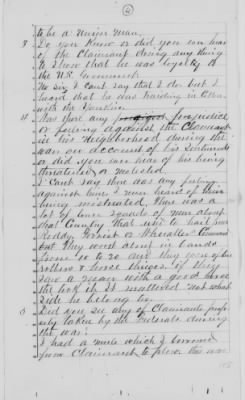 4
to be a Union Man.
3 Do you know or did you ever hear
of the Claimant doing any thing
to show that he was loyalty to
the U.S. Government
No sir I cant say that I do but I
heard that he was
with the Yankies
4 Was there any prejudice
or feeling against the Claimant
in his Neighborhood during the
war on account of his Sentiments
or did you ever hear of his being
threatened or molested.
I Cant say there was any feeling
against him I never heard of their
being mistreated, there was a
lot of scouts of men about
that Country that use to hail from
Roddy, Forrest & Wheeler Command
but They went about in bands
from 10 to 20 and they were after
robbers & horse thieves if they
saw a man with a good horse
the took it It mattered not what
side he belong to.
5 Did you see any of Claimants prop-
erty taken by the Federals during
the war?
I had a mule which I borrowed
from Claimant to plow this was